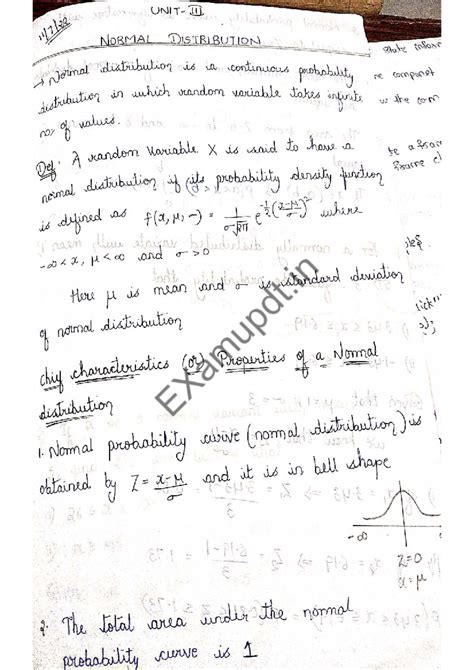 11/7/22
UNIT-II
NORMAL DISTRIBUTION
→ Normal distribution is a continuous probability
distribution in which random variable takes infinite
no. of values.
Def: A random variable X is said to have a
normal distribution if its probability density function
is defined as f(x, μ, σ) = 1/(σ√2π) e^{-1/2((x-μ)/σ)^2} where
-∞<x, μ<∞ and σ>0
Here μ is mean and σ is standard deviation
of normal distribution
chief characteristics (or) Properties of a Normal
distribution
1. Normal probability curve (normal distribution) is
obtained by Z = (x-μ)/σ and it is in bell shape
-∞ ∞
Z=0
x=μ
2. The total area under the normal
probability curve is 1
Examupdt.in